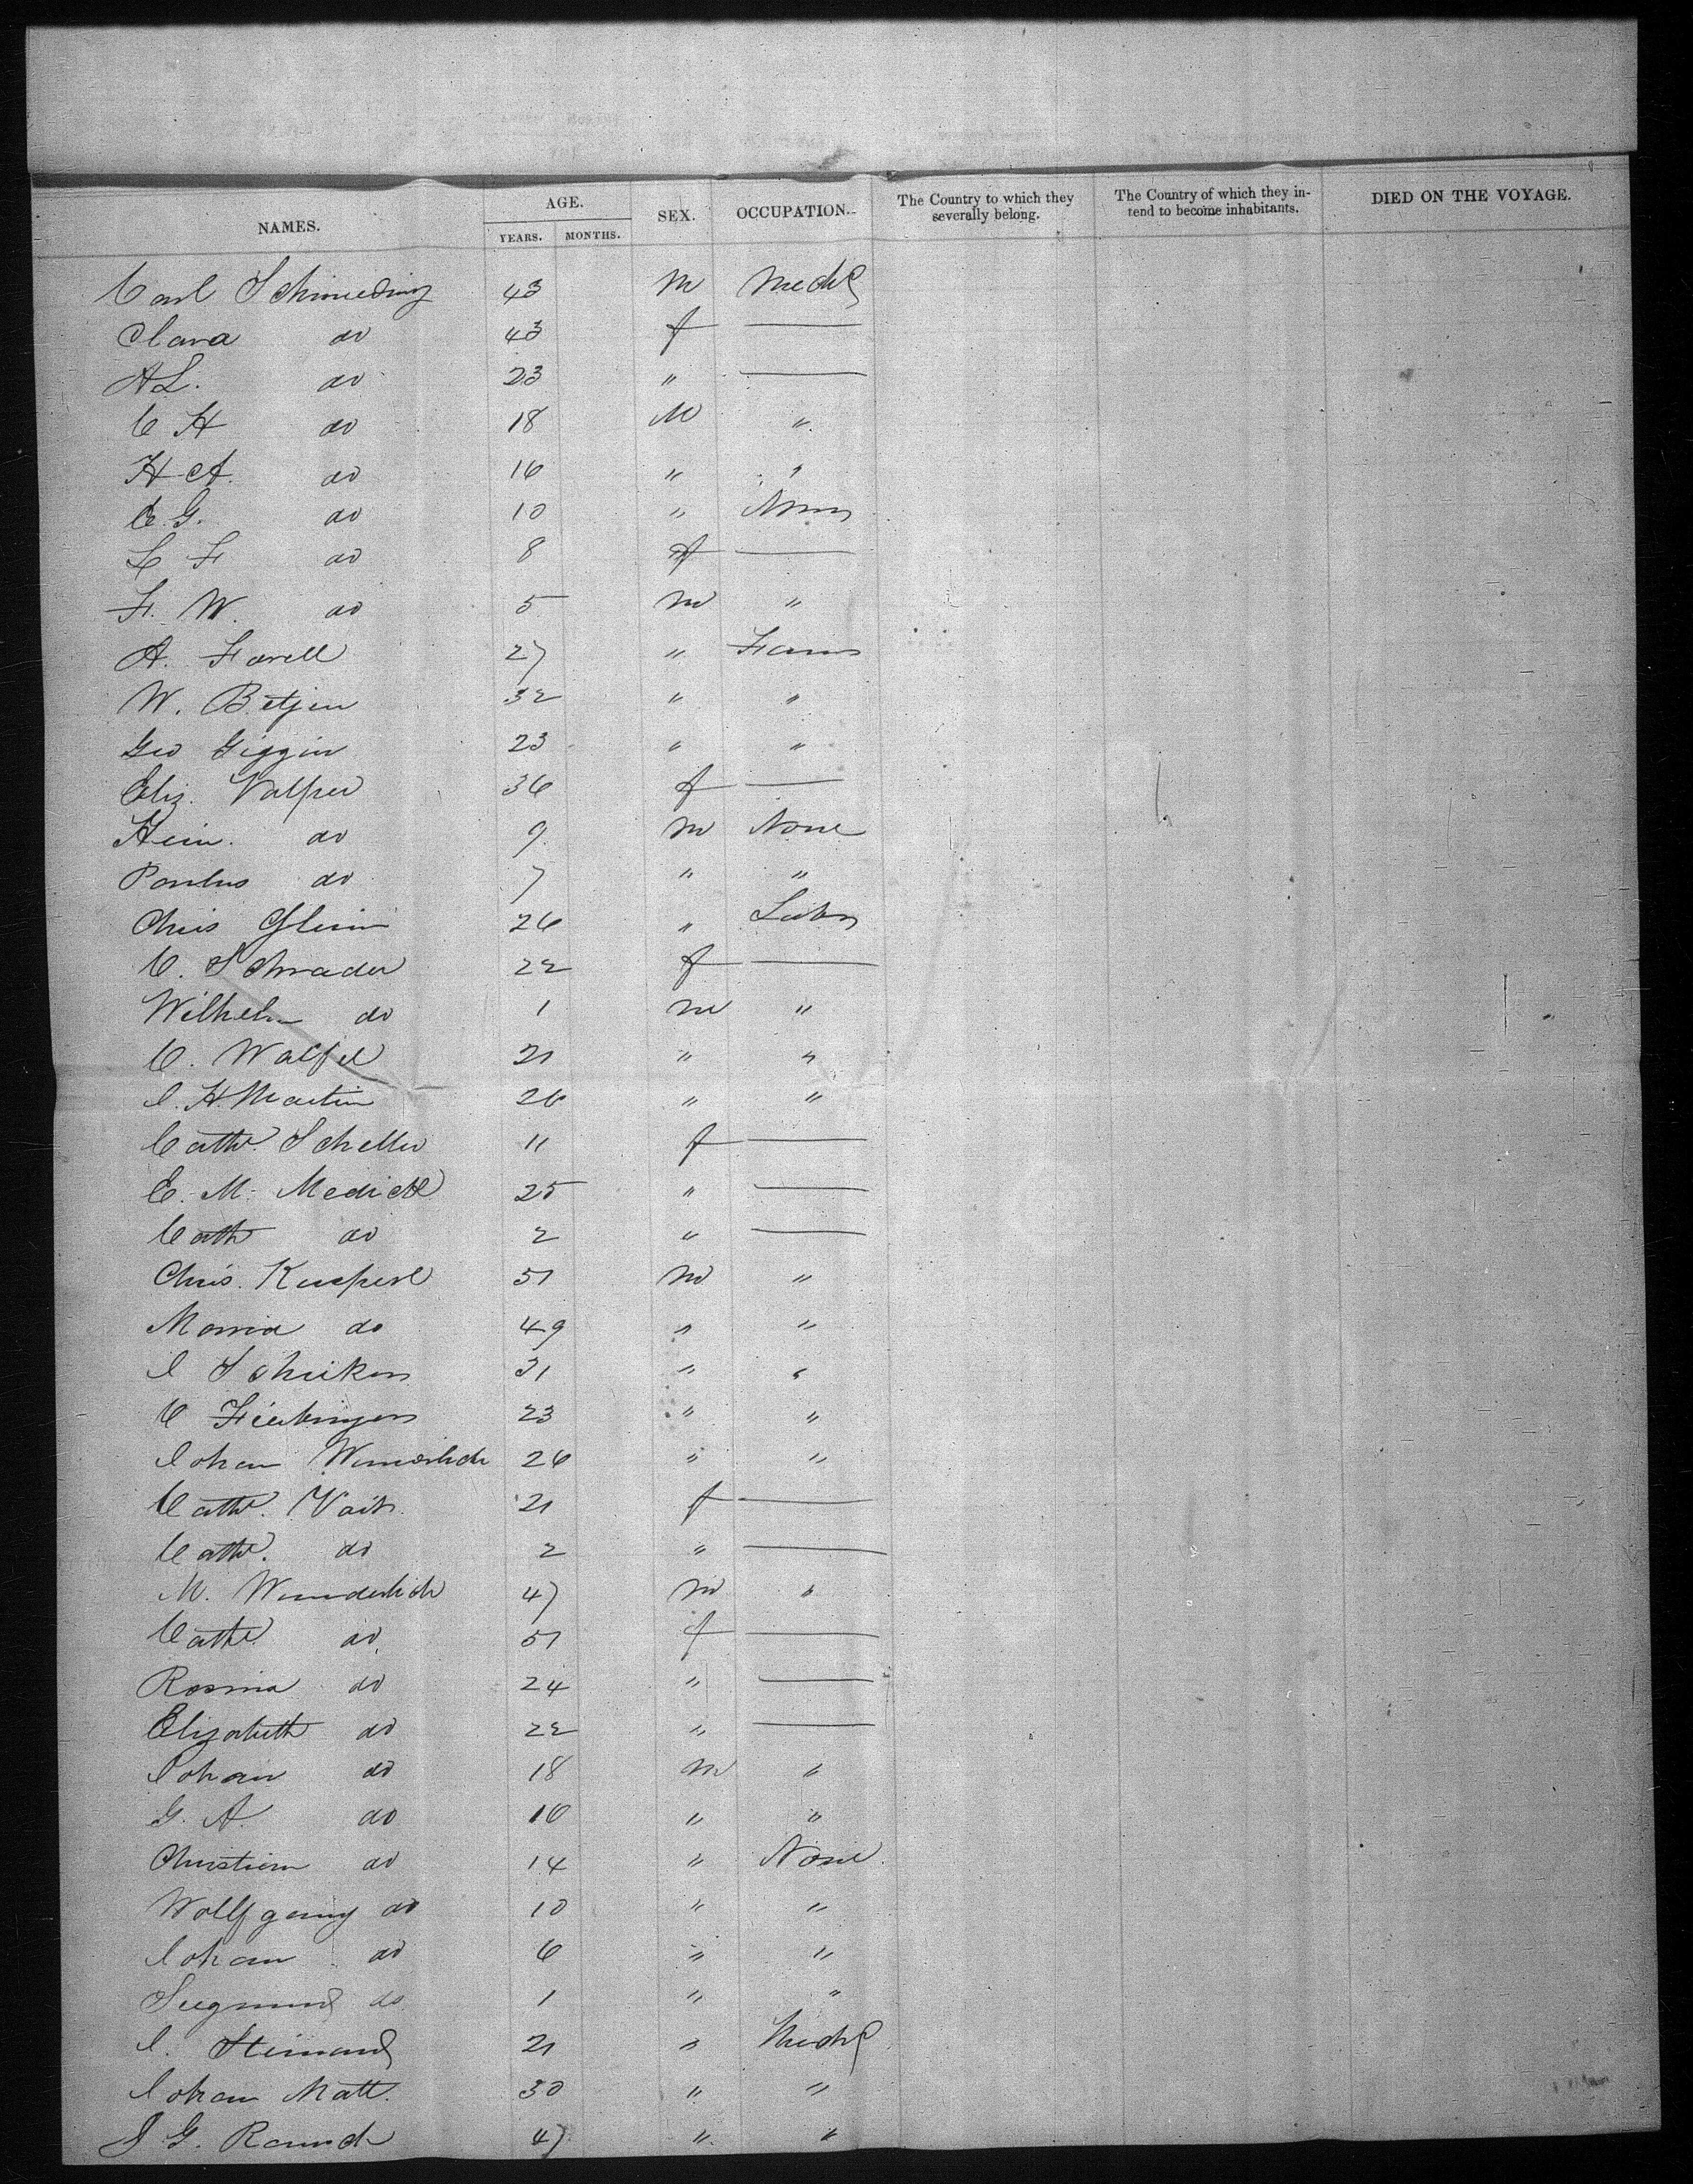 NAMES. AGE. SEX. OCCUPATION. The Country to which they severally belong. The Country of which they intend to become inhabitants. DIED ON THE VOYAGE.
YEARS. MONTHS.
Carl Schmieding 43 M Mech
Clara do 43 f —
A L. do 23 " —
C H do 18 M "
H A. do 16 " "
E. G. do 10 " None
L F do 8 f —
F. W. do 5 M "
A. Farell 27 " Farm
W. Betjen 32 " "
Geo Giggin 23 " "
Eliz. 36 f —
Hein. do 9 M None
Paulus do 7 " "
Chris 26 " Labr
C. Schrader 22 f —
Wilhelm do 1 M "
C. 21 " "
I. H. Martin 26 " "
Cath. Scheller 11 f —
E. M. Medick 25 " —
Cath do 2 " —
Chris. 51 M "
Maria do 49 " "
I 31 " "
C 23 " "
Johan Wunderlich 26 " "
Cath. Voit 21 f —
Cath. do 2 " —
M. Wunderlich 47 M "
Cath. do 51 f —
Rosina do 24 " —
Elizabeth do 22 " —
Johan do 18 M "
G. A. do 16 " "
Christian do 14 " None
Wolfgang do 10 " "
Johan do 6 " "
Siegmund do 1 " "
I. 21 " Mech
Johan Matt. 30 " "
J G. Rausch 47 " "